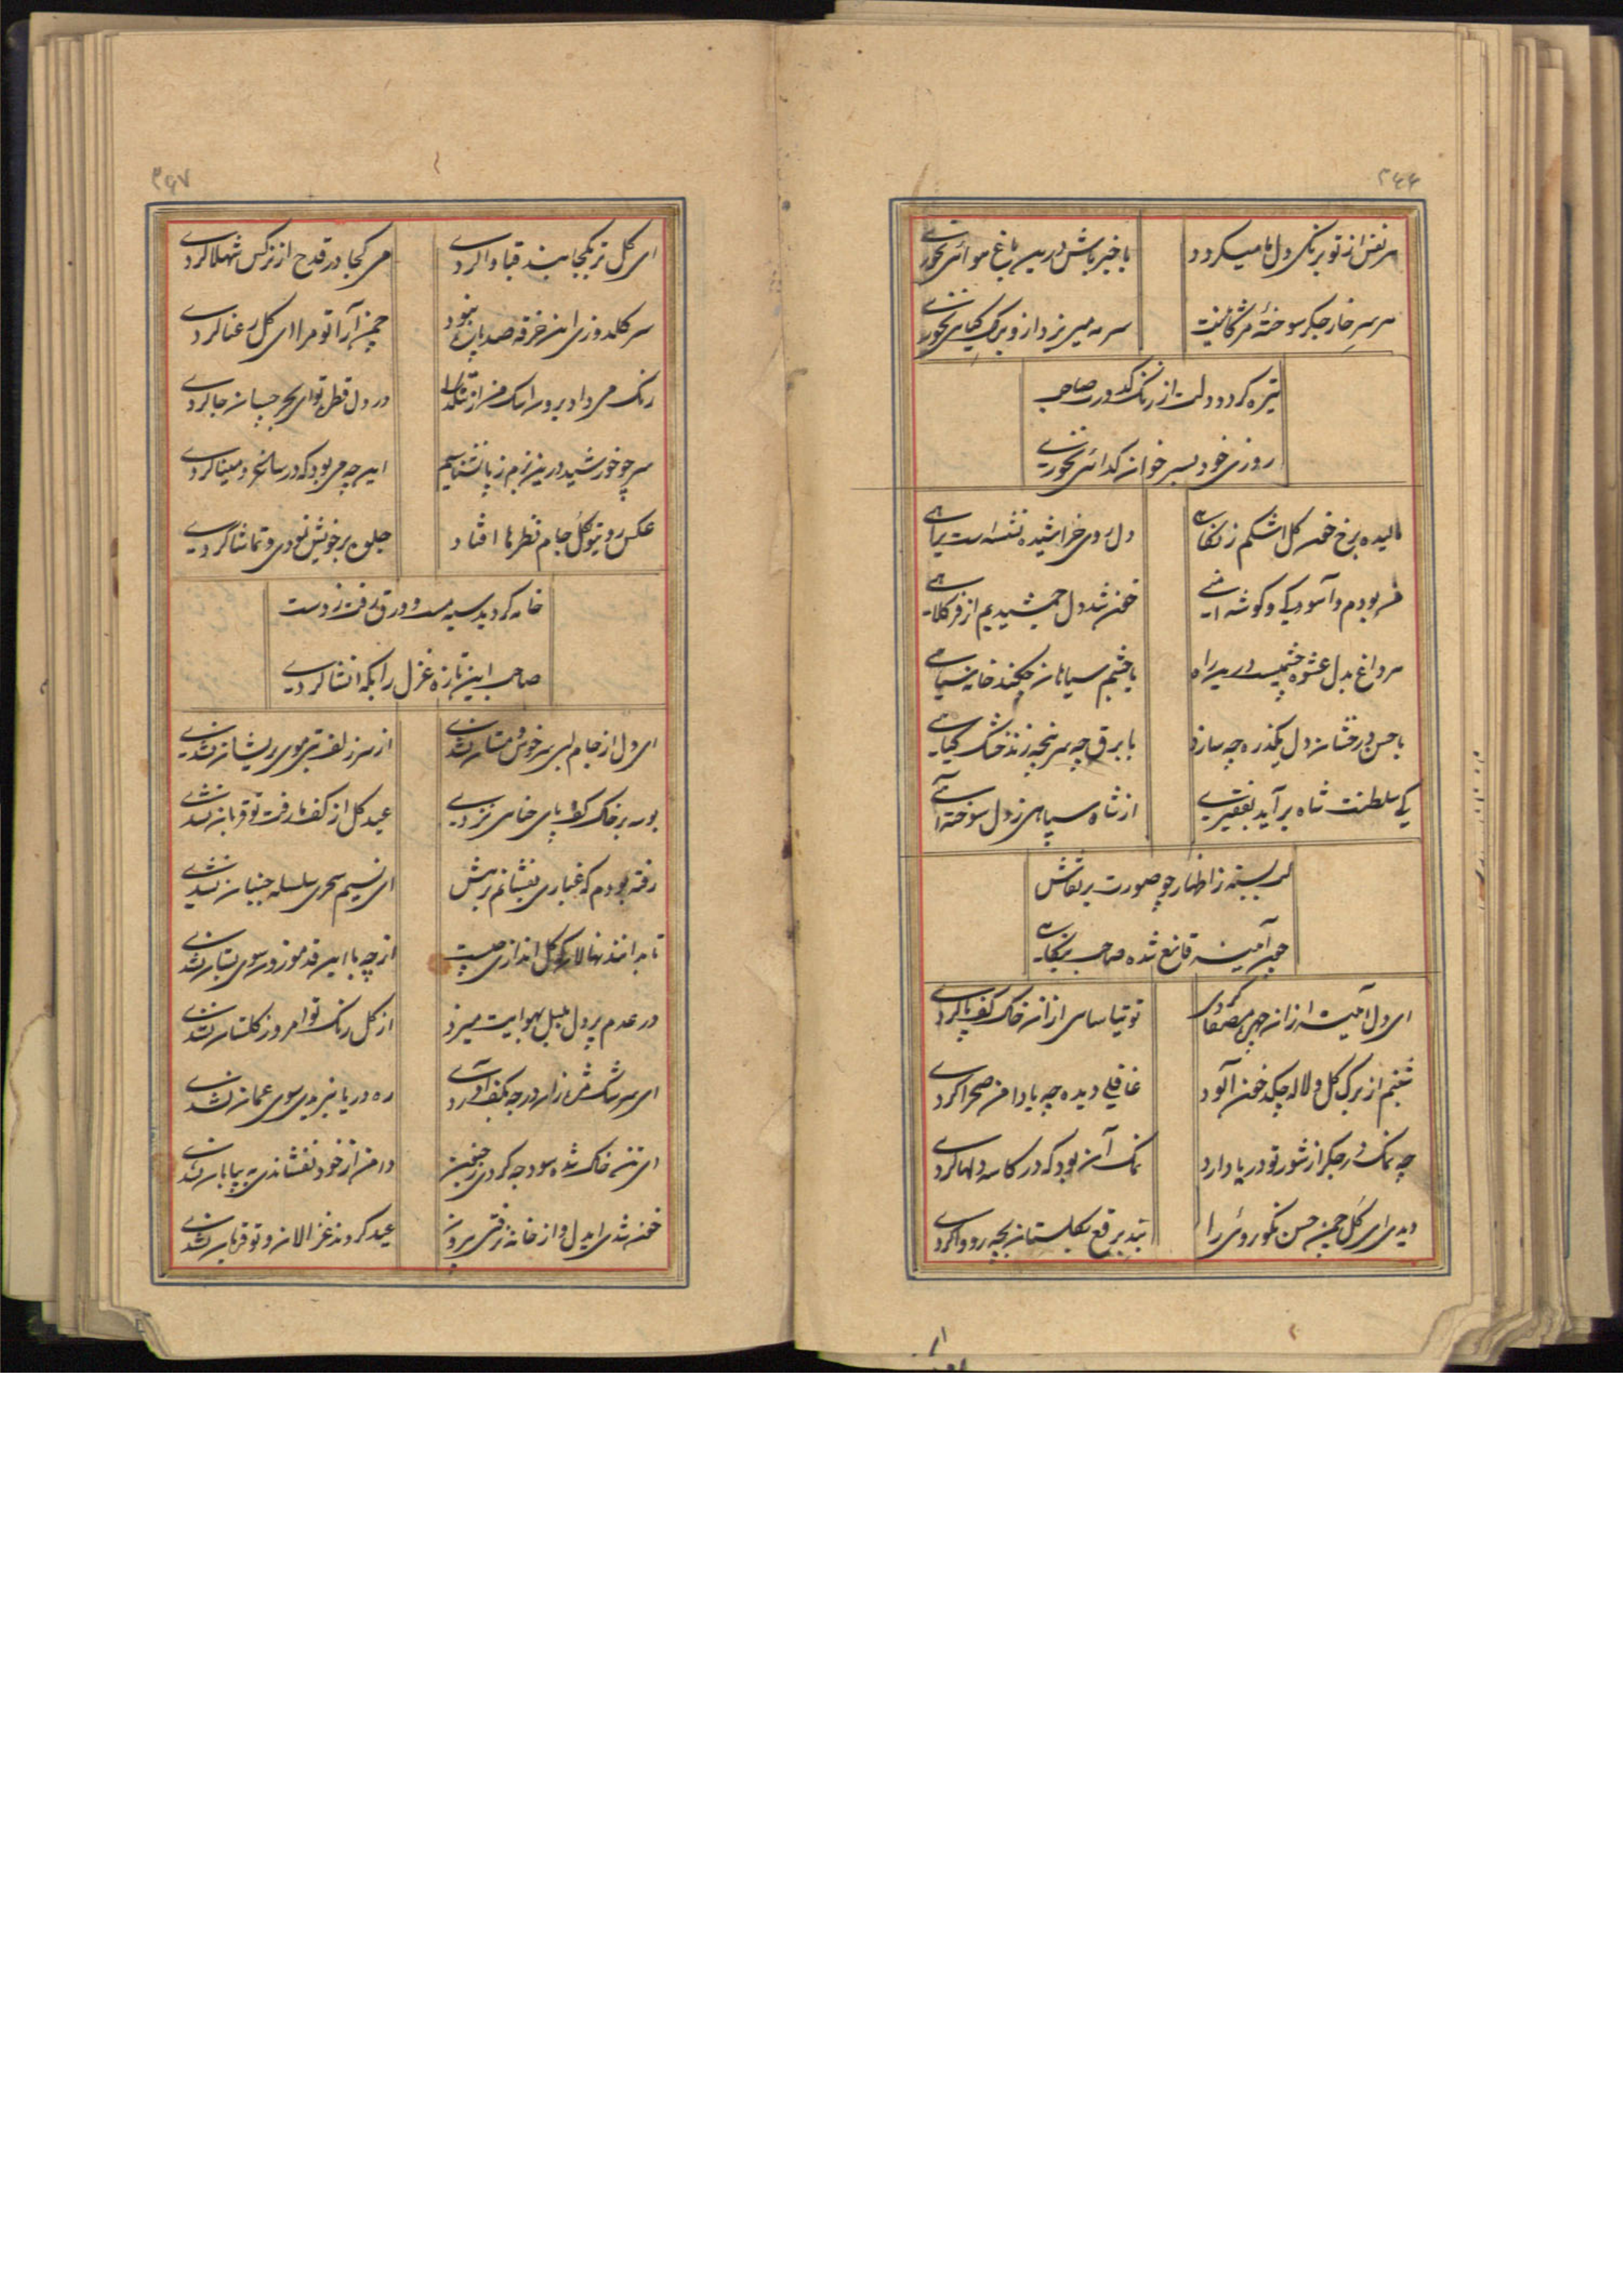 ۲۶۶
هر نفس از تو برنگی دل ما میکردد باخبر باش درین باغ هوائی نخوری
هر سر خار جکر سوخته مژکانیست سرمه میریزد ازو برک کیاهی نخوری
تیره کردد دلت از زنک کدورت صاحب
روزی خود بسر خوان کدائی نخوری
مالیده برخ خون کل اشکم ز نکاهی دل روی خراشیده نشسته است براهی
من بودم و آسودکی و کوشه امنی خون شد دل جمشیدیم از فر کلاهی
هر داغ بدل عشوه چشمیست درین راه با چشم سیاهان چکند خانه سیاهی
با حسن درخشان دل یکذره چه سازد با برق چه سرپنجه زند خشک کیاهی
کی سلطنت شاه برآید بفقیری از شاه سپاهی ز دل سوخته آهی
لب بسته ز اظهار چو صورت بر نقاش
چون آینه قانع شده صاحب بنکاهی
ای دل آئینه ازان چهره مصفا کردی توتیا سای ازان خاک کف پا کردی
شبنم از برک کل و لاله چکد خون آلود غافلی دیده چه با دامن صحرا کردی
چه نمک در جکر از شور تو دریا دارد نمک آن بود که در کاسه دلها کردی
دیدی ای کل چمن حسن نکوروئی را بند برقع بکلستان بچه رو وا کردی
۲۶۷
ای کل تر بکجا بند قبا وا کردی می کجا در قدح از نرکس شهلا کردی
سر کلدوزی این خرقه صدپاره نبود چمن آرا تو مرا ای کل رعنا کردی
رنک می داد برون اشک من از در دل قطره تو ای بحر چسان جا کردی
سر چو خورشید درین بزم ز پا نشناسیم این چه می بود که در ساغر و مینا کردی
عکس روی تو کل جام نظرها افتاد جلوه بر خویش نمودی و تماشا کردی
خامه کردید سیه مست و ورق رفت ز دست
صاحب این تازه غزل را بکه انشا کردی
ای دل از جام لبی سرخوش و مستان نشدی از سر زلف بتی موی پریشان نشدی
بوسه بر خاک کف پای حنائی نزدی عید کل از کف ما رفت تو قربان نشدی
رفته بودم که غباری بنشانم برهش ای نسیم سحری سلسله جنبان نشدی
تا بدانند نهالان که کل اندازی چیست از چه با این قد موزون سوی بستان نشدی
در عدم پر دل بلبل بهوایت میزد از کل رنک تو امروز کلستان نشدی
ای سرشک مژه زاد ره دریا نبریدی سوی عمان نشدی
ای تن خاک شده سود چه کردی ز جنون دامن از خود نفشاندی به بیابان نشدی
خون شدی ایدل و از خانه نرفتی بیرون عید کردند غزالان و تو قربان نشدی